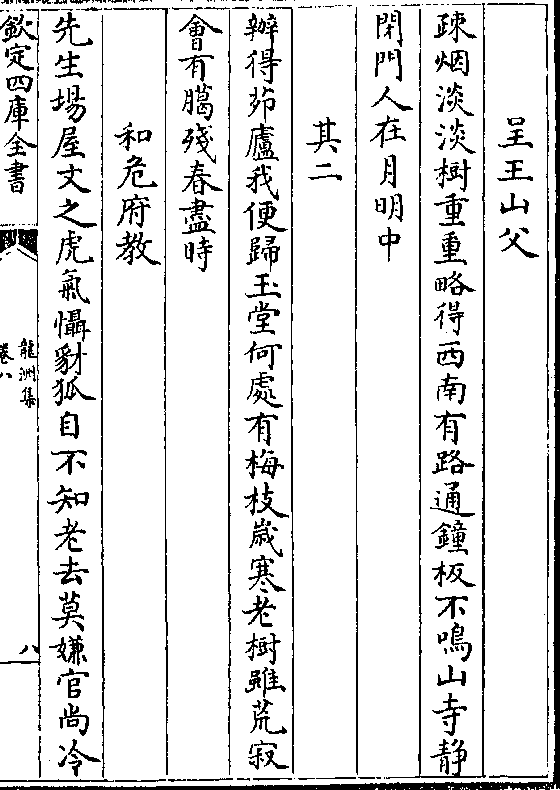 呈王山父
疎烟淡淡樹重重略得西南有路通鐘板不鳴山寺静
閉門人在月明中
其二
辦得茆廬我便歸玉堂何處有梅枝嵗寒老樹雖荒寂
會有臈殘春盡時
和危府教
先生場屋文之虎氣懾豺狐自不知老去莫嫌官尚冷
欽定四庫全書
龍洲集
卷八
八